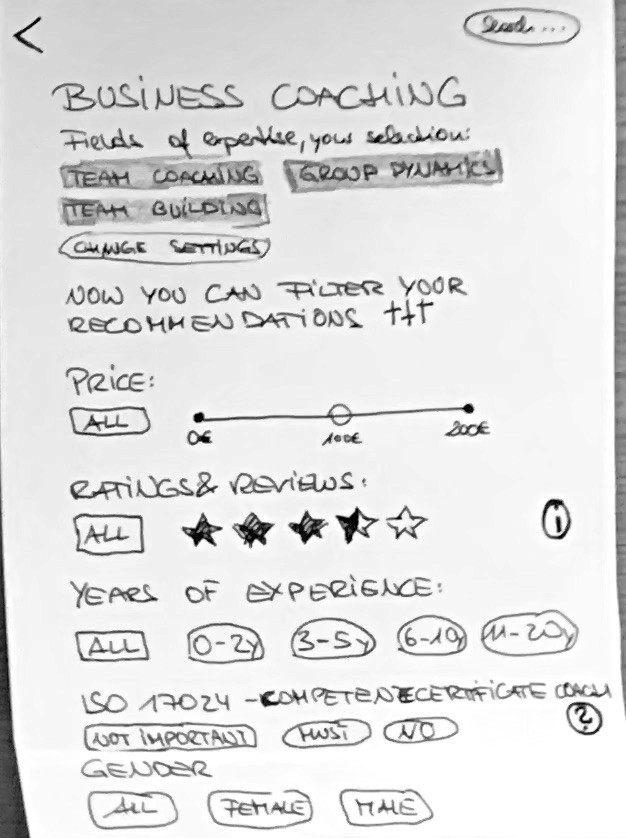 Search...
BUSINESS COACHING
Fields of expertise, your selection:
TEAM COACHING GROUP DYNAMICS
TEAM BUILDING
CHANGE SETTINGS
NOW YOU CAN FILTER YOUR
RECOMMENDATIONS
PRICE:
ALL
0€ 100€ 200€
RATINGS & REVIEWS:
ALL i
YEARS OF EXPERIENCE:
ALL 0-2y 3-5y 6-10y 11-20y
ISO 17024 - KOMPETENZECERTIFICATE COACH
NOT IMPORTANT MUST NO ?
GENDER
ALL FEMALE MALE